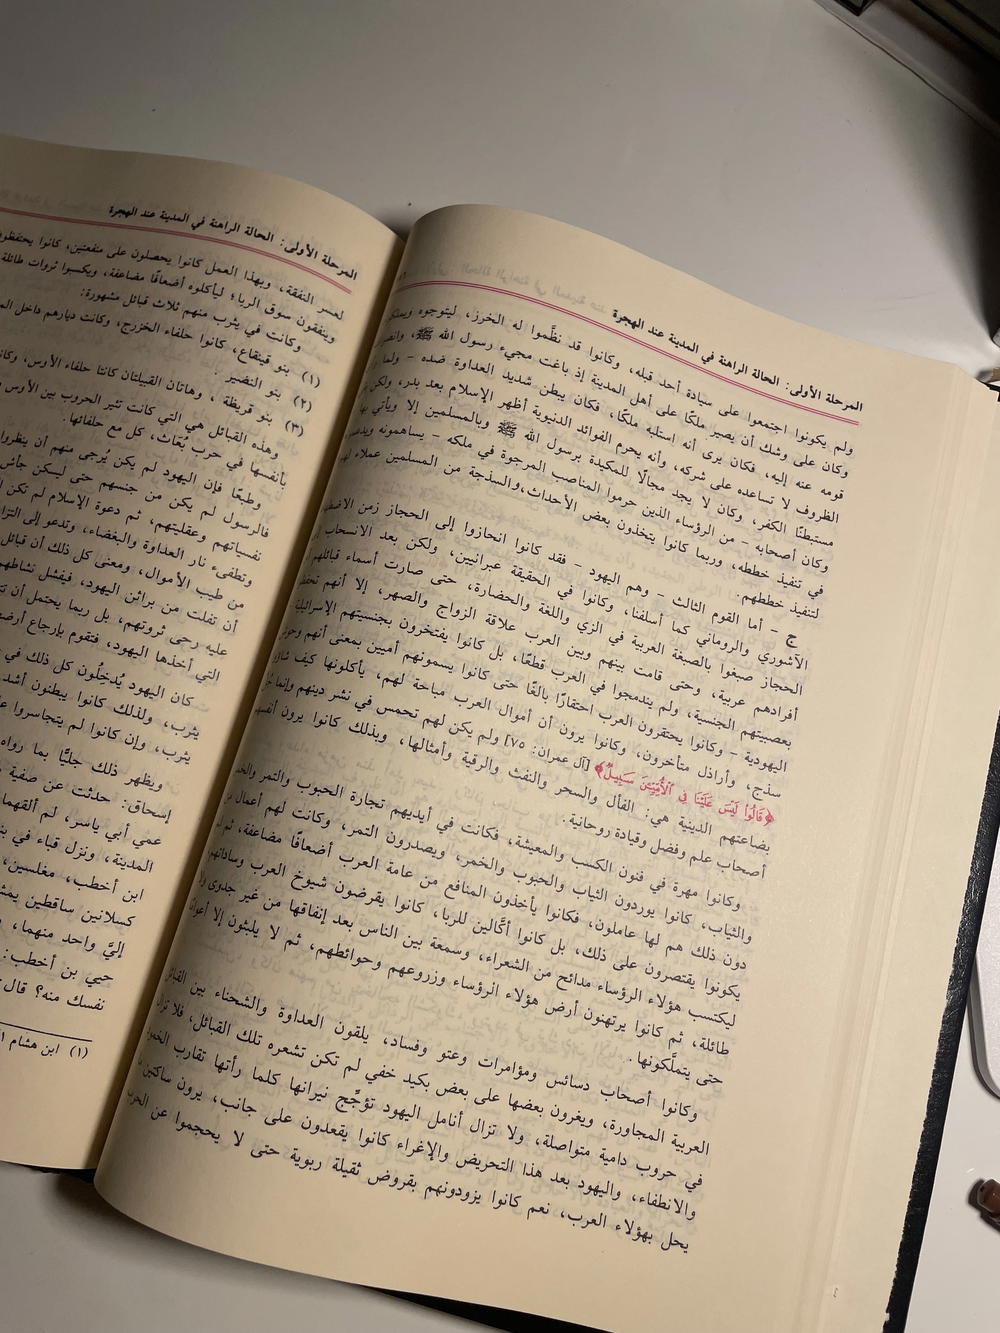 المرحلة الأولى: الحالة الراهنة في المدينة عند الهجرة
ولم يكونوا اجتمعوا على سيادة أحد قبله، وكانوا قد نظَّموا له الخرز، ليتوجوه
وكان على وشك أن يصير ملكًا على أهل المدينة إذ باغت مجيء رسول الله ﷺ،
قومه عنه إليه، فكان يرى أنه استلبه ملكًا، فكان يبطن شديد العداوة ضده - ولما
الظروف لا تساعده على شركه، وأنه يحرم الفوائد الدنيوية أظهر الإسلام بعد بدر، ولكن
مستبطنًا الكفر، وكان لا يجد مجالًا للمكيدة برسول الله ﷺ وبالمسلمين إلا ويأتي بها
وكان أصحابه - من الرؤساء الذين حرموا المناصب المرجوة في ملكه - يساهمونه
في تنفيذ خططه، وربما كانوا يتخذون بعض الأحداث، والسذجة من المسلمين عملاء لهم
لتنفيذ خططهم.
ج - أما القوم الثالث - وهم اليهود - فقد كانوا انحازوا إلى الحجاز زمن
الأشوري والروماني كما أسلفنا، وكانوا في الحقيقة عبرانيين، ولكن بعد الانسحاب
الحجاز صبغوا بالصبغة العربية في الزي واللغة والحضارة، حتى صارت أسماء قبائلهم
أفرادهم عربية، وحتى قامت بينهم وبين العرب علاقة الزواج والصهر، إلا أنهم
بعصبيتهم الجنسية، ولم يندمجوا في العرب قطعًا، بل كانوا يفتخرون بجنسيتهم الإسرائيلية
اليهودية - وكانوا يحتقرون العرب احتقارًا بالغًا حتى كانوا يسمونهم أميين بمعنى أنهم
سذج، وأراذل متأخرون، وكانوا يرون أن أموال العرب مباحة لهم، يأكلونها كيف
﴿قَالُوا لَيْسَ عَلَيْنَا فِي الْأُمِّيِّنَ سَبِيلٌ﴾ [آل عمران: ٧٥] ولم يكن لهم تحمس في نشر دينهم وإنما
بضاعتهم الدينية هي: الفأل والسحر والنفث والرقية وأمثالها، وبذلك كانوا يرون أنفسهم
أصحاب علم وفضل وقيادة روحانية.
وكانوا مهرة في فنون الكسب والمعيشة، فكانت في أيديهم تجارة الحبوب والتمر
والثياب، كانوا يوردون الثياب والحبوب والخمر، ويصدرون التمر، وكانت لهم أعمال
دون ذلك هم لها عاملون، فكانوا يأخذون المنافع من عامة العرب أضعافًا مضاعفة، ثم
يكونوا يقتصرون على ذلك، بل كانوا أكَّالين للربا، كانوا يقرضون شيوخ العرب وساداتهم
ليكتسب هؤلاء الرؤساء مدائح من الشعراء، وسمعة بين الناس بعد إنفاقها من غير جدوى ولا
طائلة، ثم كانوا يرتهنون أرض هؤلاء الرؤساء وزروعهم وحوائطهم، ثم لا يلبثون إلا
حتى يتملَّكونها.
وكانوا أصحاب دسائس ومؤامرات وعتو وفساد، يلقون العداوة والشحناء بين
العربية المجاورة، ويغرون بعضها على بعض بكيد خفي لم تكن تشعره تلك القبائل، فلا
في حروب دامية متواصلة، ولا تزال أنامل اليهود تؤجِّج نيرانها كلما رأتها تقارب الخمود
والانطفاء، واليهود بعد هذا التحريض والإغراء كانوا يقعدون على جانب، يرون ساكتين
يحل بهؤلاء العرب، نعم كانوا يزودونهم بقروض ثقيلة ربوية حتى لا يحجموا عن
المرحلة الأولى: الحالة الراهنة في المدينة عند الهجرة
لعسر النفقة، وبهذا العمل كانوا يحصلون على منفعتين، كانوا يحتفظون
وينفقون سوق الربا؛ ليأكلوه أضعافًا مضاعفة، ويكسبوا ثروات طائلة
وكانت في يثرب منهم ثلاث قبائل مشهورة:
(١) بنو قينقاع، كانوا حلفاء الخزرج، وكانت ديارهم داخل
(٢) بنو النضير.
(٣) بنو قريظة، وهاتان القبيلتان كانتا حلفاء الأوس،
وهذه القبائل هي التي كانت تثير الحروب بين الأوس
بأنفسها في حرب بُعَاث، كل مع حلفائها.
وطبعًا فإن اليهود لم يكن يُرجى منهم أن ينظروا
فالرسول لم يكن من جنسهم حتى ليسكن جأش
نفسياتهم وعقليتهم، ثم دعوة الإسلام لم تكن
وتطفىء نار العداوة والبغضاء، وتدعو إلى
من طيب الأموال، ومعنى كل ذلك أن قبائل
أن تفلت من براثن اليهود، فيفشل نشاطهم
عليه رحى ثروتهم، بل ربما يحتمل أن
التي أخذها اليهود، فتقوم بإرجاع
كان اليهود يُدخلُون كل ذلك في
يثرب، ولذلك كانوا يبطنون أشد
يثرب، وإن كانوا لم يتجاسروا
ويظهر ذلك جليًّا بما رواه
إسحاق: حدثت عن صفية
عمي أبي ياسر، لم ألقهما
المدينة، ونزل قباء في
ابن أخطب، مغلسين،
كسلانين ساقطين
إليَّ واحد منهما،
حيي بن أخطب:
نفسك منه؟ قال:
(١) ابن هشام